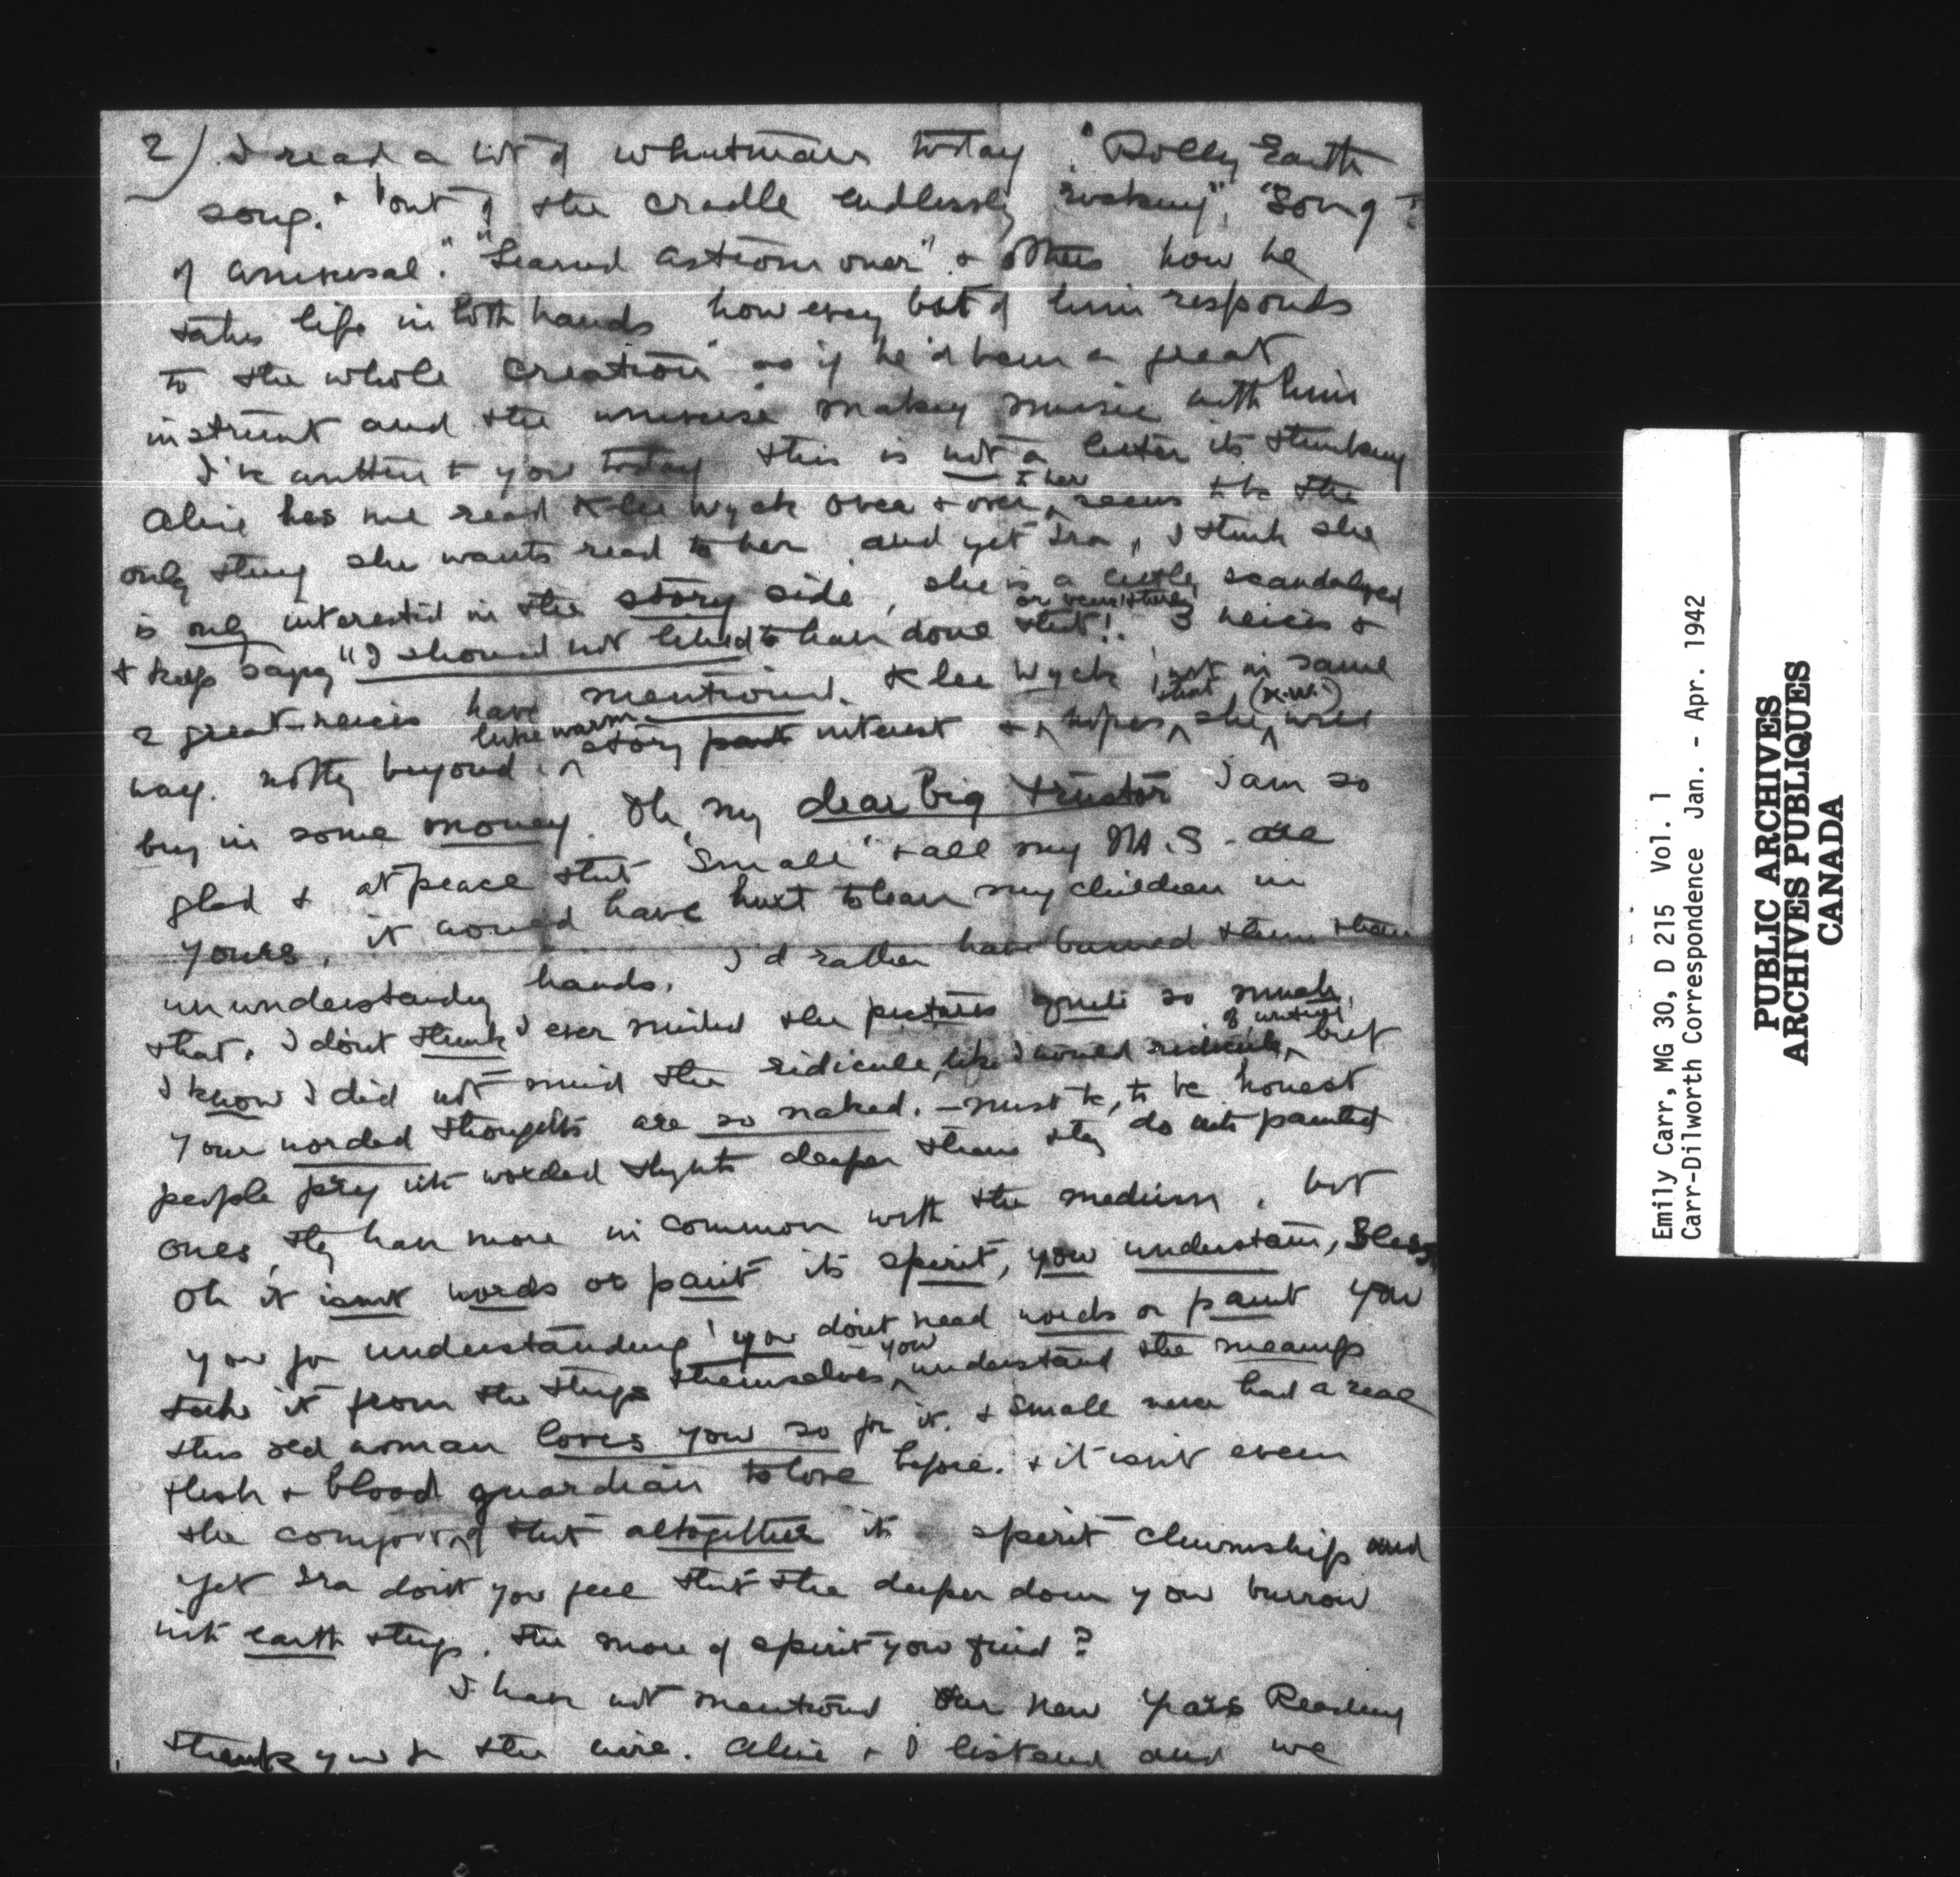 2) I read a lot of whitman today "Rolly Earth
song." "out of the cradle endlessly rocking", "Song
of universal." "Learned astronomer" & others how he
takes life in both hands how every bit of him responds
to the whole creation as if he'd been a great
instrument and the universe making music with him
I've written to you today this is not a letter its thinking
Alice has me read Klee Wyck over & over, ^ to her seems to be the
only thing she wants read to her and yet Ira, I think she
is only interested in the story side, she is a little scandalized
& keeps saying "I should not liked to have done that!" 3 neices &
2 great-neices have mentioned Klee Wyck, but in same
way. nothing beyond ^ luke warm story part interest & ^ hopes ^ that she ^ (K.W.) will
bring in some money. Oh, my dear big trustor I am so
glad & at peace that "Small" & all my M.S. are
yours, it would have hurt to leave my children in
ununderstanding hands. I'd rather have burned them than
that. I don't think I ever minded the pictures quite so much,
I know I did not mind the ridicule, like I would ridicule ^ of writing, but
your worded thoughts are so naked. - must be, to be honest
people pry into worded thoughts deeper than they do into painted
ones, they have more in common with the medium, but
Oh it isn't words or paint its spirit, you understand, Bless
you for understanding! you don't need words or paint you
take it from the things themselves, ^ you understand the meanings
this old woman loves you so for it. & Small never had a real
flesh & blood guardian to love before. & it isn't even
the that altogether it spirit chumship and
yet Ira don't you feel that the deeper down you burrow
into earth things, the more of spirit you find?
I have not mentioned our New Years Reading
thank you for the wire. Alice & I listened and we
Emily Carr, MG 30, D 215 Vol. 1
Carr-Dilworth Correspondence Jan. - Apr. 1942
PUBLIC ARCHIVES
ARCHIVES PUBLIQUES
CANADA